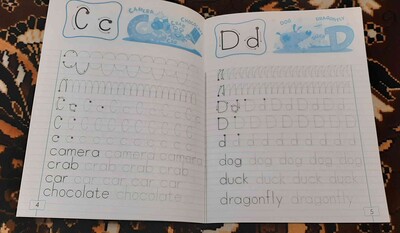 C c
C c
C
c
camera camera camera
crab crab crab crab
car car car car car
chocolate chocolate
4
D d
D d
D D D D D D D D
d d d d d d d d
dog dog dog dog dog
duck duck duck duck
dragonfly dragonfly
5